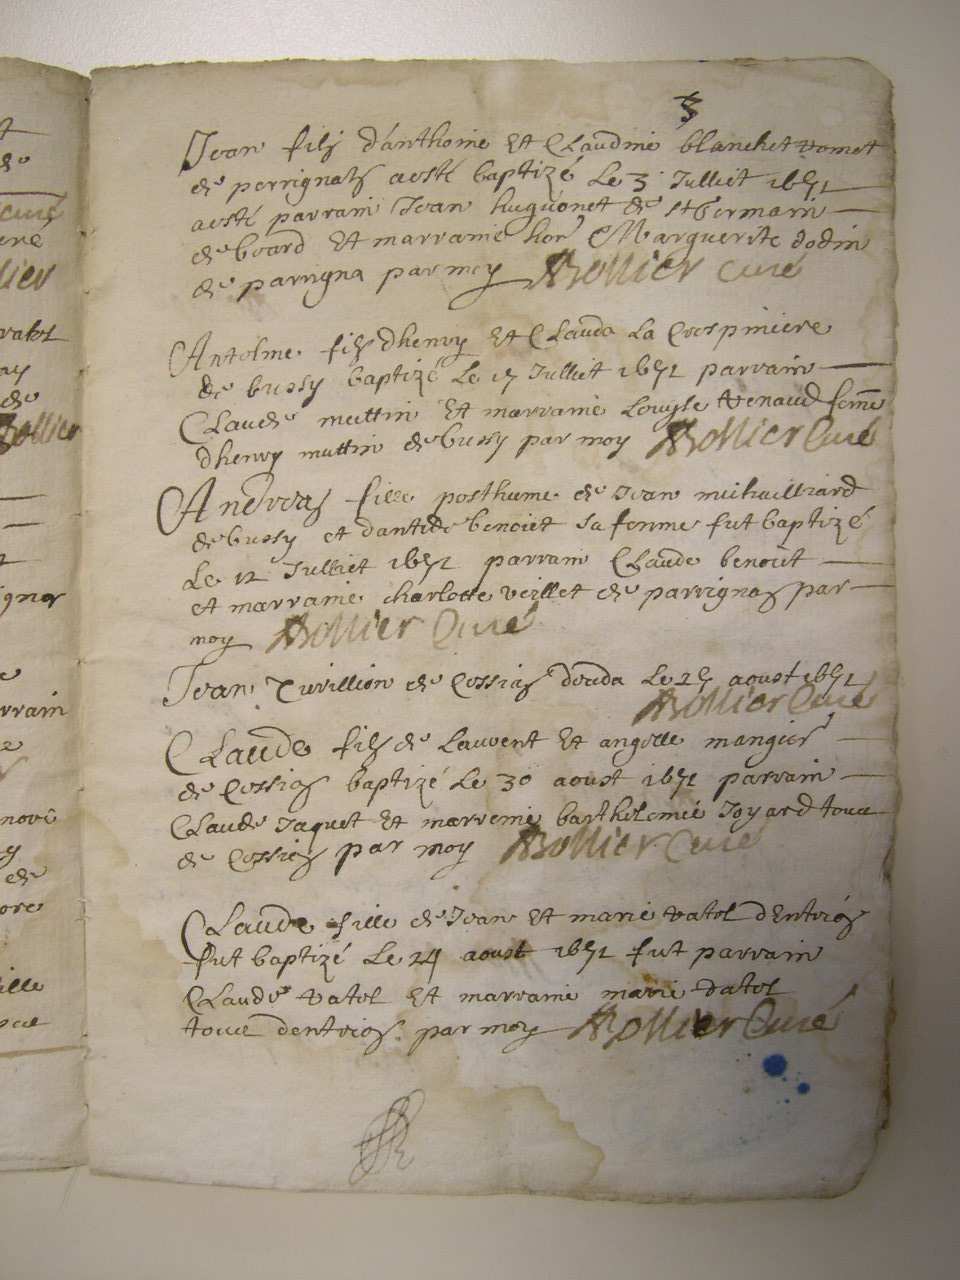 3
Jean filz d'anthoine Et Claudine blanchet
de perrignatz aesté baptizé Le 3 Julliet 1651
aesté parrain Jean huguonet de st Germain
de board Et marraine hon Marguerite dodin
de parrigna par moy Bollier Curé
Antolme filz dhenry Et Clauda La Corspiniere
de bussy baptizé Le 17 Julliet 1651 parrain
Claude muttin Et marraine Louyse Venaud femme
dhenry muttin de bussy par moy Bollier Curé
Andreas fille posthume de Jean michailliard
de bussy et benoiet sa femme fut baptizé
Le 12 Julliet 1651 parrain Claude benoiit
et marraine charlotte veillet de parrignas par
moy Bollier Curé
Jean de Cossias deceda Le aoust 1651
Bollier Curé
Claude filz de Laurent Et angelle mangier
de Cossias baptizé Le 30 aoust 1651 parrain
Claude Jaquet Et marreine barthelemie Joyard tous
de Cossias par moy Bollier Curé
Claude fille de Jean Et marie vatol
fut baptizé Le 24 aoust 1651 fut parrain
Claude vatol Et marraine marie vatol
tous par moy Bollier Curé